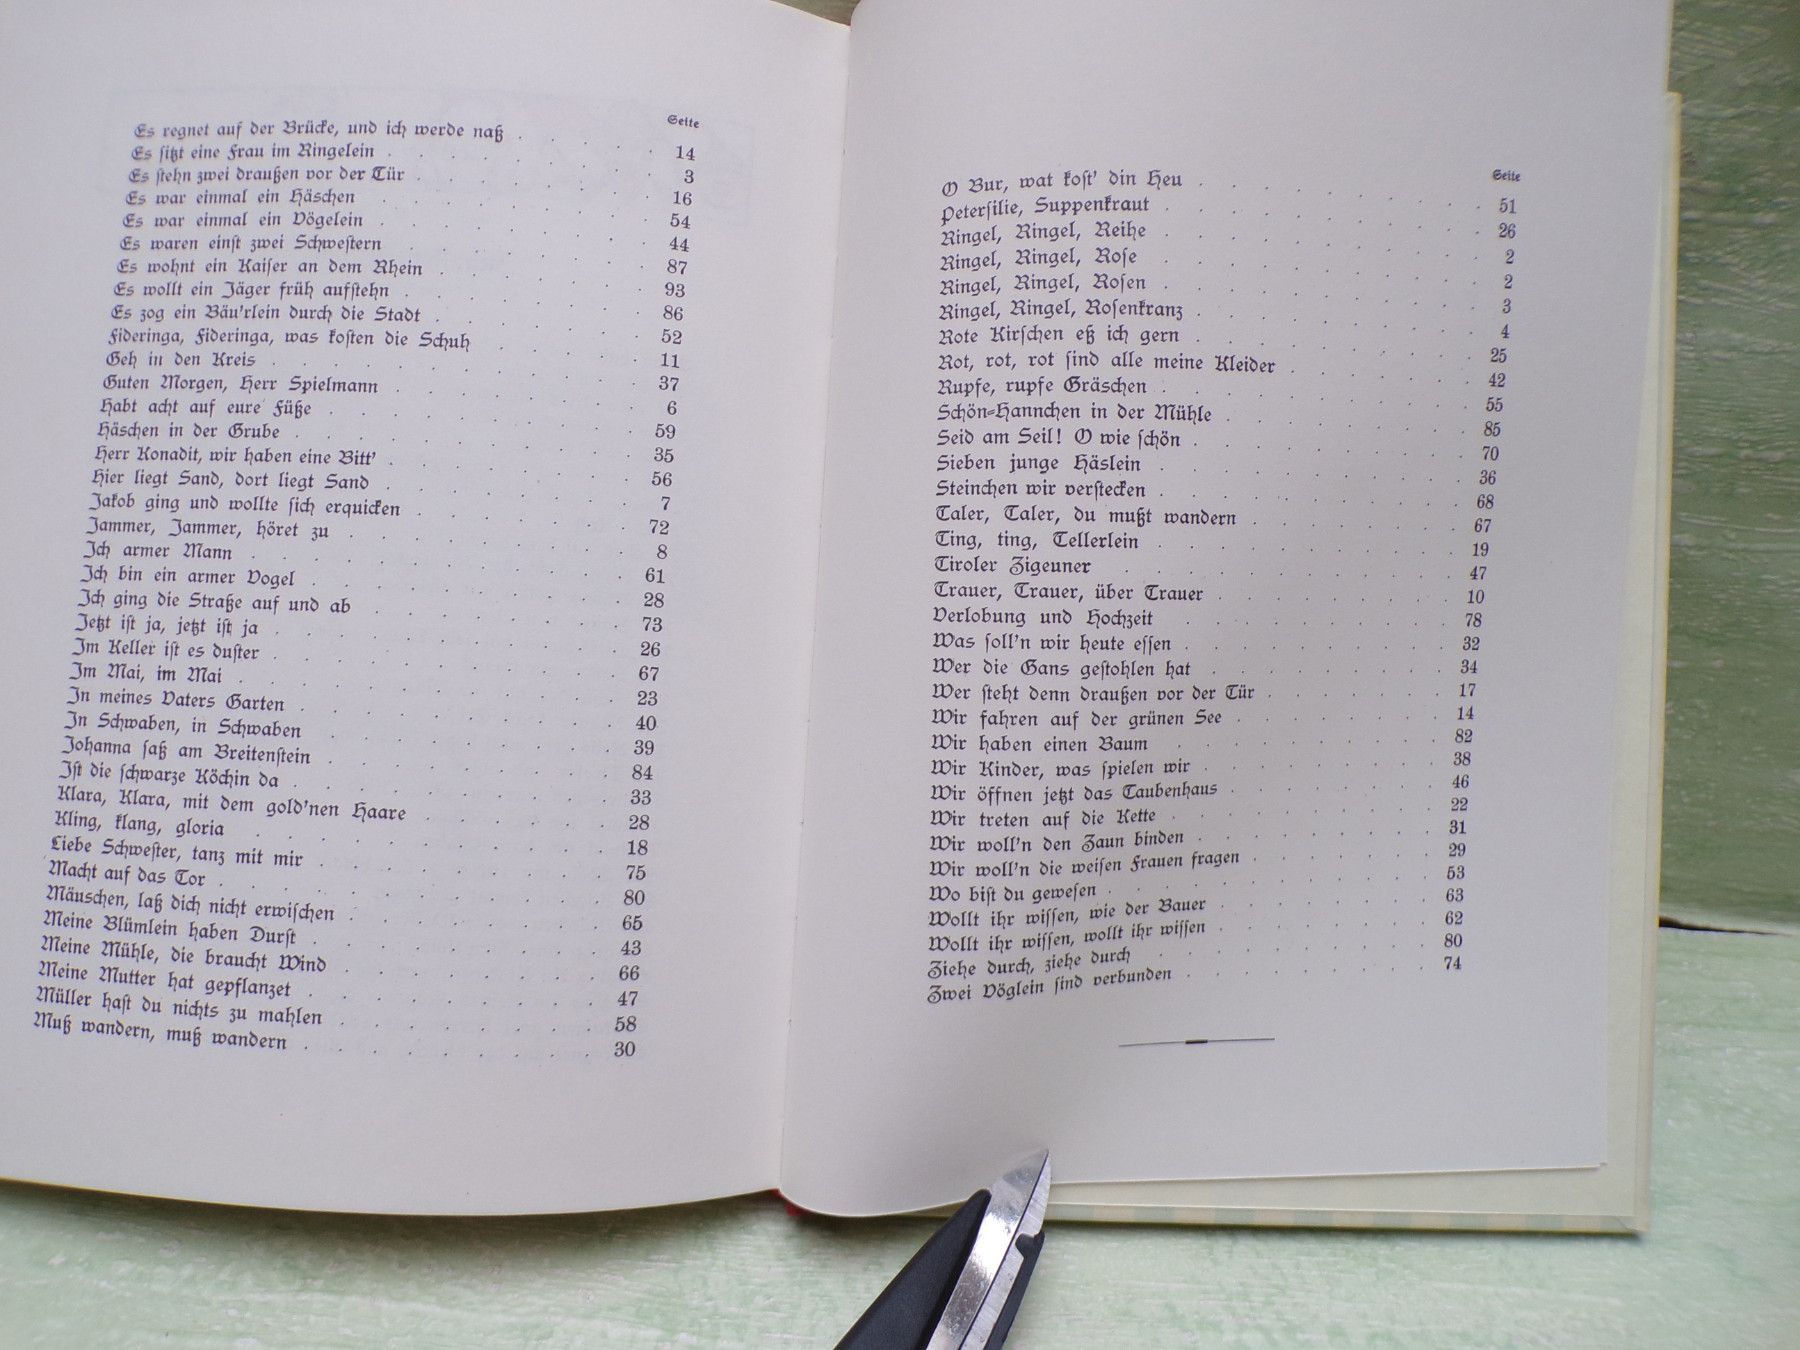 Seite
Es regnet auf der Brücke, und ich werde naß . . . . 14
Es sitzt eine Frau im Ringelein . . . . 3
Es stehn zwei draußen vor der Tür . . . . 16
Es war einmal ein Häschen . . . . 54
Es war einmal ein Vögelein . . . . 44
Es waren einst zwei Schwestern . . . . 87
Es wohnt ein Kaiser an dem Rhein . . . . 93
Es wollt ein Jäger früh aufstehn . . . . 86
Es zog ein Bäu'rlein durch die Stadt . . . . 52
Fideringa, Fideringa, was kosten die Schuh . . . . 11
Geh in den Kreis . . . . 37
Guten Morgen, Herr Spielmann . . . . 6
Habt acht auf eure Füße . . . . 59
Häschen in der Grube . . . . 35
Herr Konadit, wir haben eine Bitt' . . . . 56
Hier liegt Sand, dort liegt Sand . . . . 7
Jakob ging und wollte sich erquicken . . . . 72
Jammer, Jammer, höret zu . . . . 8
Ich armer Mann . . . . 61
Ich bin ein armer Vogel . . . . 28
Ich ging die Straße auf und ab . . . . 73
Jetzt ist ja, jetzt ist ja . . . . 26
Im Keller ist es duster . . . . 67
Im Mai, im Mai . . . . 23
In meines Vaters Garten . . . . 40
In Schwaben, in Schwaben . . . . 39
Johanna saß am Breitenstein . . . . 84
Ist die schwarze Köchin da . . . . 33
Klara, Klara, mit dem gold'nen Haare . . . . 28
Kling, klang, gloria . . . . 18
Liebe Schwester, tanz mit mir . . . . 75
Macht auf das Tor . . . . 80
Mäuschen, laß dich nicht erwischen . . . . 65
Meine Blümlein haben Durst . . . . 43
Meine Mühle, die braucht Wind . . . . 66
Meine Mutter hat gepflanzet . . . . 47
Müller hast du nichts zu mahlen . . . . 58
Muß wandern, muß wandern . . . . 30
Seite
O Bur, wat kost' din Heu . . . . 51
Petersilie, Suppenkraut . . . . 26
Ringel, Ringel, Reihe . . . . 2
Ringel, Ringel, Rose . . . . 2
Ringel, Ringel, Rosen . . . . 3
Ringel, Ringel, Rosenkranz . . . . 4
Rote Kirschen eß ich gern . . . . 25
Rot, rot, rot sind alle meine Kleider . . . . 42
Rupfe, rupfe Gräschen . . . . 55
Schön-Hannchen in der Mühle . . . . 85
Seid am Seil! O wie schön . . . . 70
Sieben junge Häslein . . . . 36
Steinchen wir verstecken . . . . 68
Taler, Taler, du mußt wandern . . . . 67
Ting, ting, Tellerlein . . . . 19
Tiroler Zigeuner . . . . 47
Trauer, Trauer, über Trauer . . . . 10
Verlobung und Hochzeit . . . . 78
Was soll'n wir heute essen . . . . 32
Wer die Gans gestohlen hat . . . . 34
Wer steht denn draußen vor der Tür . . . . 17
Wir fahren auf der grünen See . . . . 14
Wir haben einen Baum . . . . 82
Wir Kinder, was spielen wir . . . . 38
Wir öffnen jetzt das Taubenhaus . . . . 46
Wir treten auf die Kette . . . . 22
Wir woll'n den Zaun binden . . . . 31
Wir woll'n die weisen Frauen fragen . . . . 29
Wo bist du gewesen . . . . 53
Wollt ihr wissen, wie der Bauer . . . . 63
Wollt ihr wissen, wollt ihr wissen . . . . 62
Ziehe durch, ziehe durch . . . . 80
Zwei Vöglein sind verbunden . . . . 74